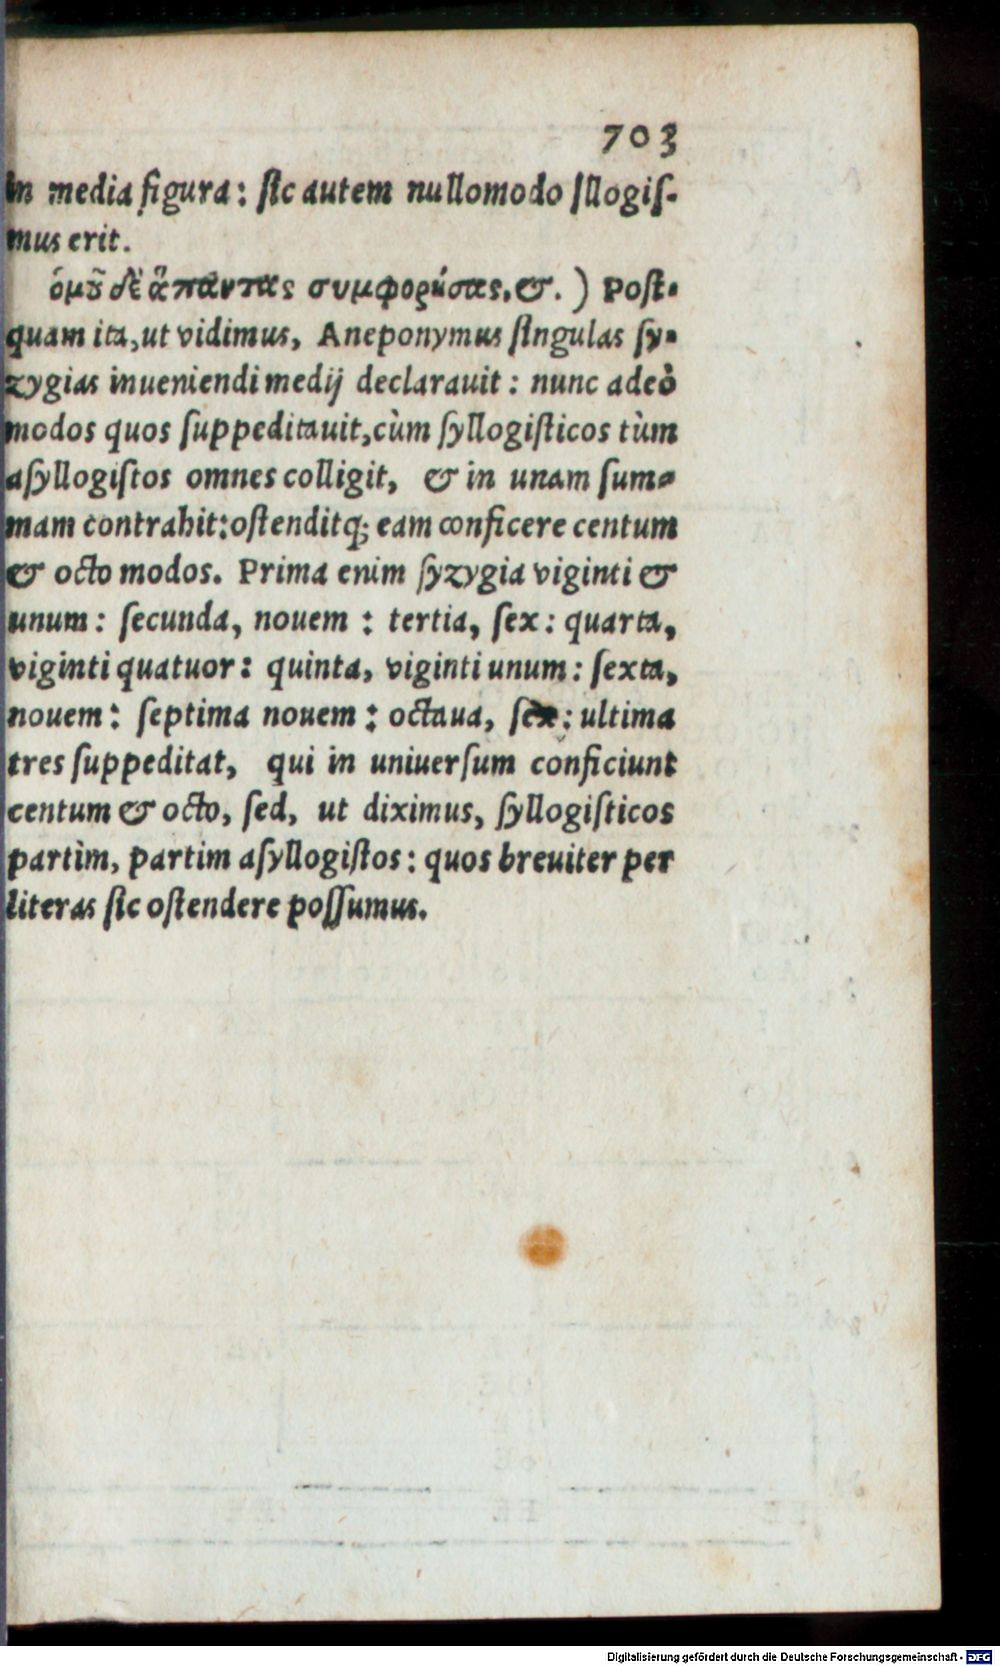 703
in media figura: sic autem nullomodo sllogis-
mus erit.
ὁμοῦ δὲ ἅπαντας συμφορήσας, &. ) Post-
quam ita, ut vidimus, Aneponymus singulas sy-
zygias inueniendi medij declarauit: nunc adeò
modos quos suppeditauit, cùm syllogisticos tùm
asyllogistos omnes colligit, & in unam sum-
mam contrahit: ostenditq; eam conficere centum
& octo modos. Prima enim syzygia viginti &
unum: secunda, nouem: tertia, sex: quarta,
viginti quatuor: quinta, viginti unum: sexta,
nouem: septima nouem: octaua, sex: ultima
tres suppeditat, qui in uniuersum conficiunt
centum & octo, sed, ut diximus, syllogisticos
partìm, partim asyllogistos: quos breuiter per
literas sic ostendere possumus.
Digitalisierung gefördert durch die Deutsche Forschungsgemeinschaft - DFG